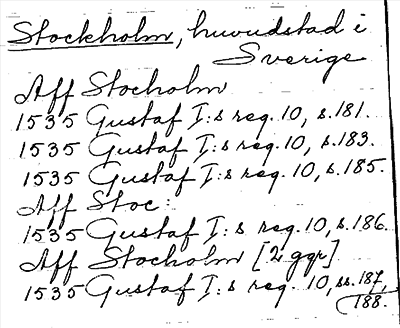 Stockholm, huvudstad i
Sverige
Aff Stocholm
1535 Gustaf I:s reg. 10, s.181.
1535 Gustaf I:s reg. 10, s.183.
1535 Gustaf I:s reg. 10, s.185.
Aff Stoc:
1535 Gustaf I:s reg. 10, s.186.
Aff Stocholm [2 ggr]
1535 Gustaf I:s reg. 10, ss.187,
188.